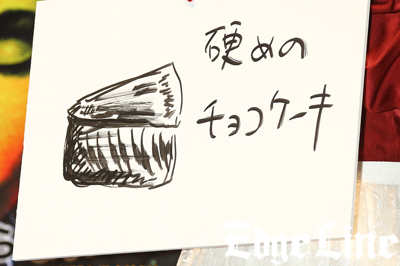 硬めの
チョコケーキ
EdgeLine